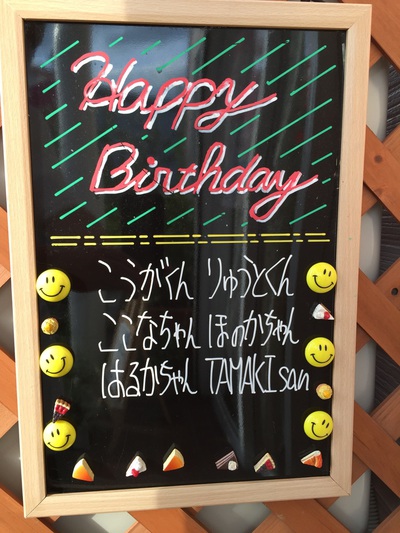 Happy
Birthday
こうがくん りゅうとくん
ここなちゃん ほのかちゃん
はるかちゃん TAMAKI san